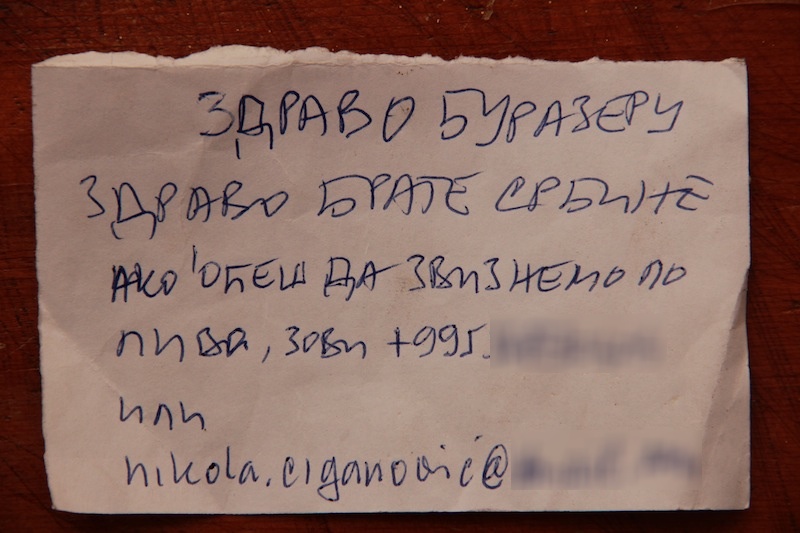 ЗДРАВО БУРАЗЕРУ
ЗДРАВО БРАТЕ СРБИНЕ
АКО 'ОЋЕШ ДА ЗВИЗНЕМО ПО
ПИВО, ЗОВИ +995
ИЛИ
nikola.ciganović@